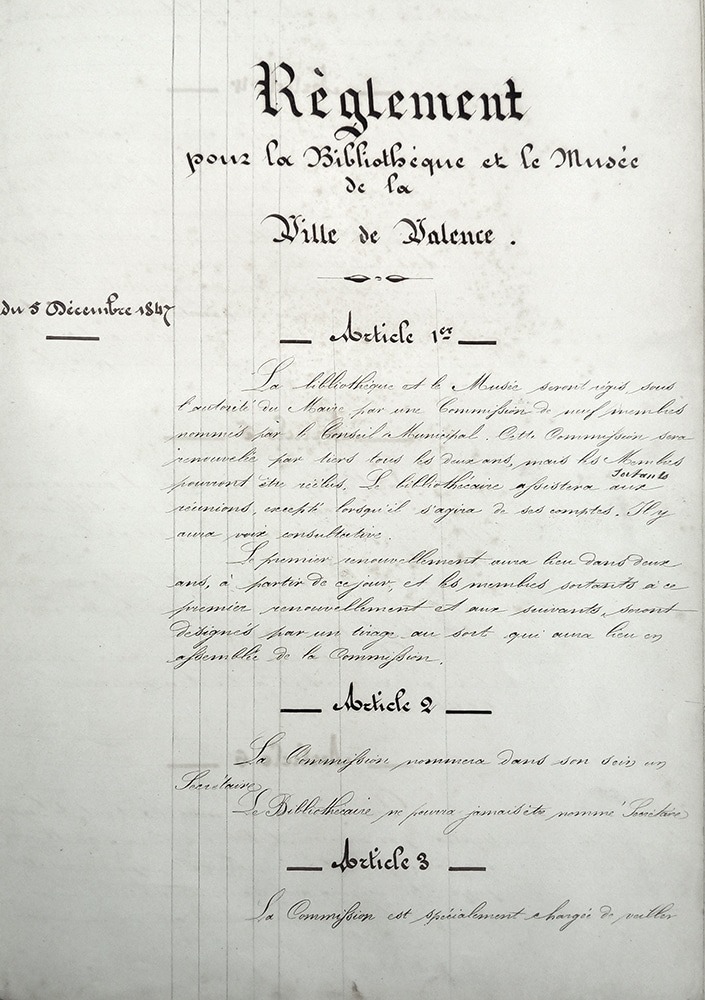 Règlement
pour la Bibliothèque et le Musée
de la
Ville de Valence.
du 5 Décembre 1847
Article 1er
La bibliothèque et le Musée seront régis sous
l'autorité du Maire par une Commission de neuf membres
nommés par le Conseil Municipal. Cette Commission sera
renouvelée par tiers tous les deux ans, mais les Membres
sortants
pourront être réélus. Le bibliothécaire assistera aux
réunions, excepté lorsqu'il s'agira de ses comptes. Il y
aura voix consultative.
Le premier renouvellement aura lieu dans deux
ans, à partir de ce jour, et les membres sortants à ce
premier renouvellement et aux suivants, seront
désignés par un tirage au sort qui aura lieu en
assemblée de la Commission.
Article 2
La Commission nommera dans son sein un
Secrétaire
Le Bibliothécaire ne pourra jamais être nommé Secrétaire
Article 3
La Commission est spécialement chargée de veiller